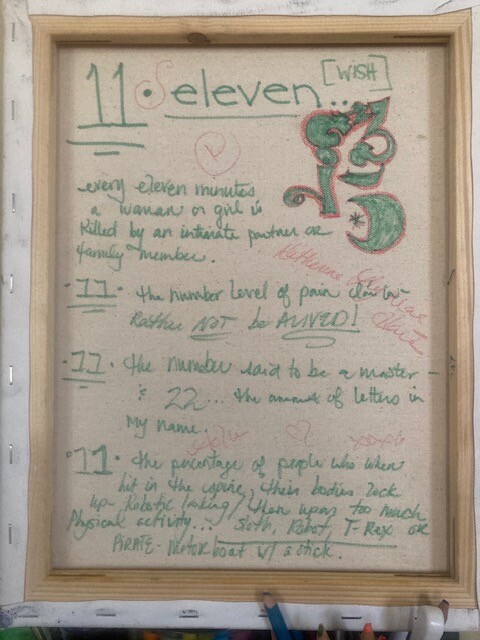 [WISH]
11. eleven...
every eleven minutes
a woman or girl is
killed by an intimate partner or
family member.
.11. the number level of pain
Rather NOT be ALIVED!
.11. the number said to be a master-
22... the amount of letters in
My name.
.11. the percentage of people who when
hit in the spine, their bodies lock
up- Robotic looking/ then upon too much
Physical activity... Sloth, Robot, T-Rex or
PIRATE- Motor boat w/ a stick.